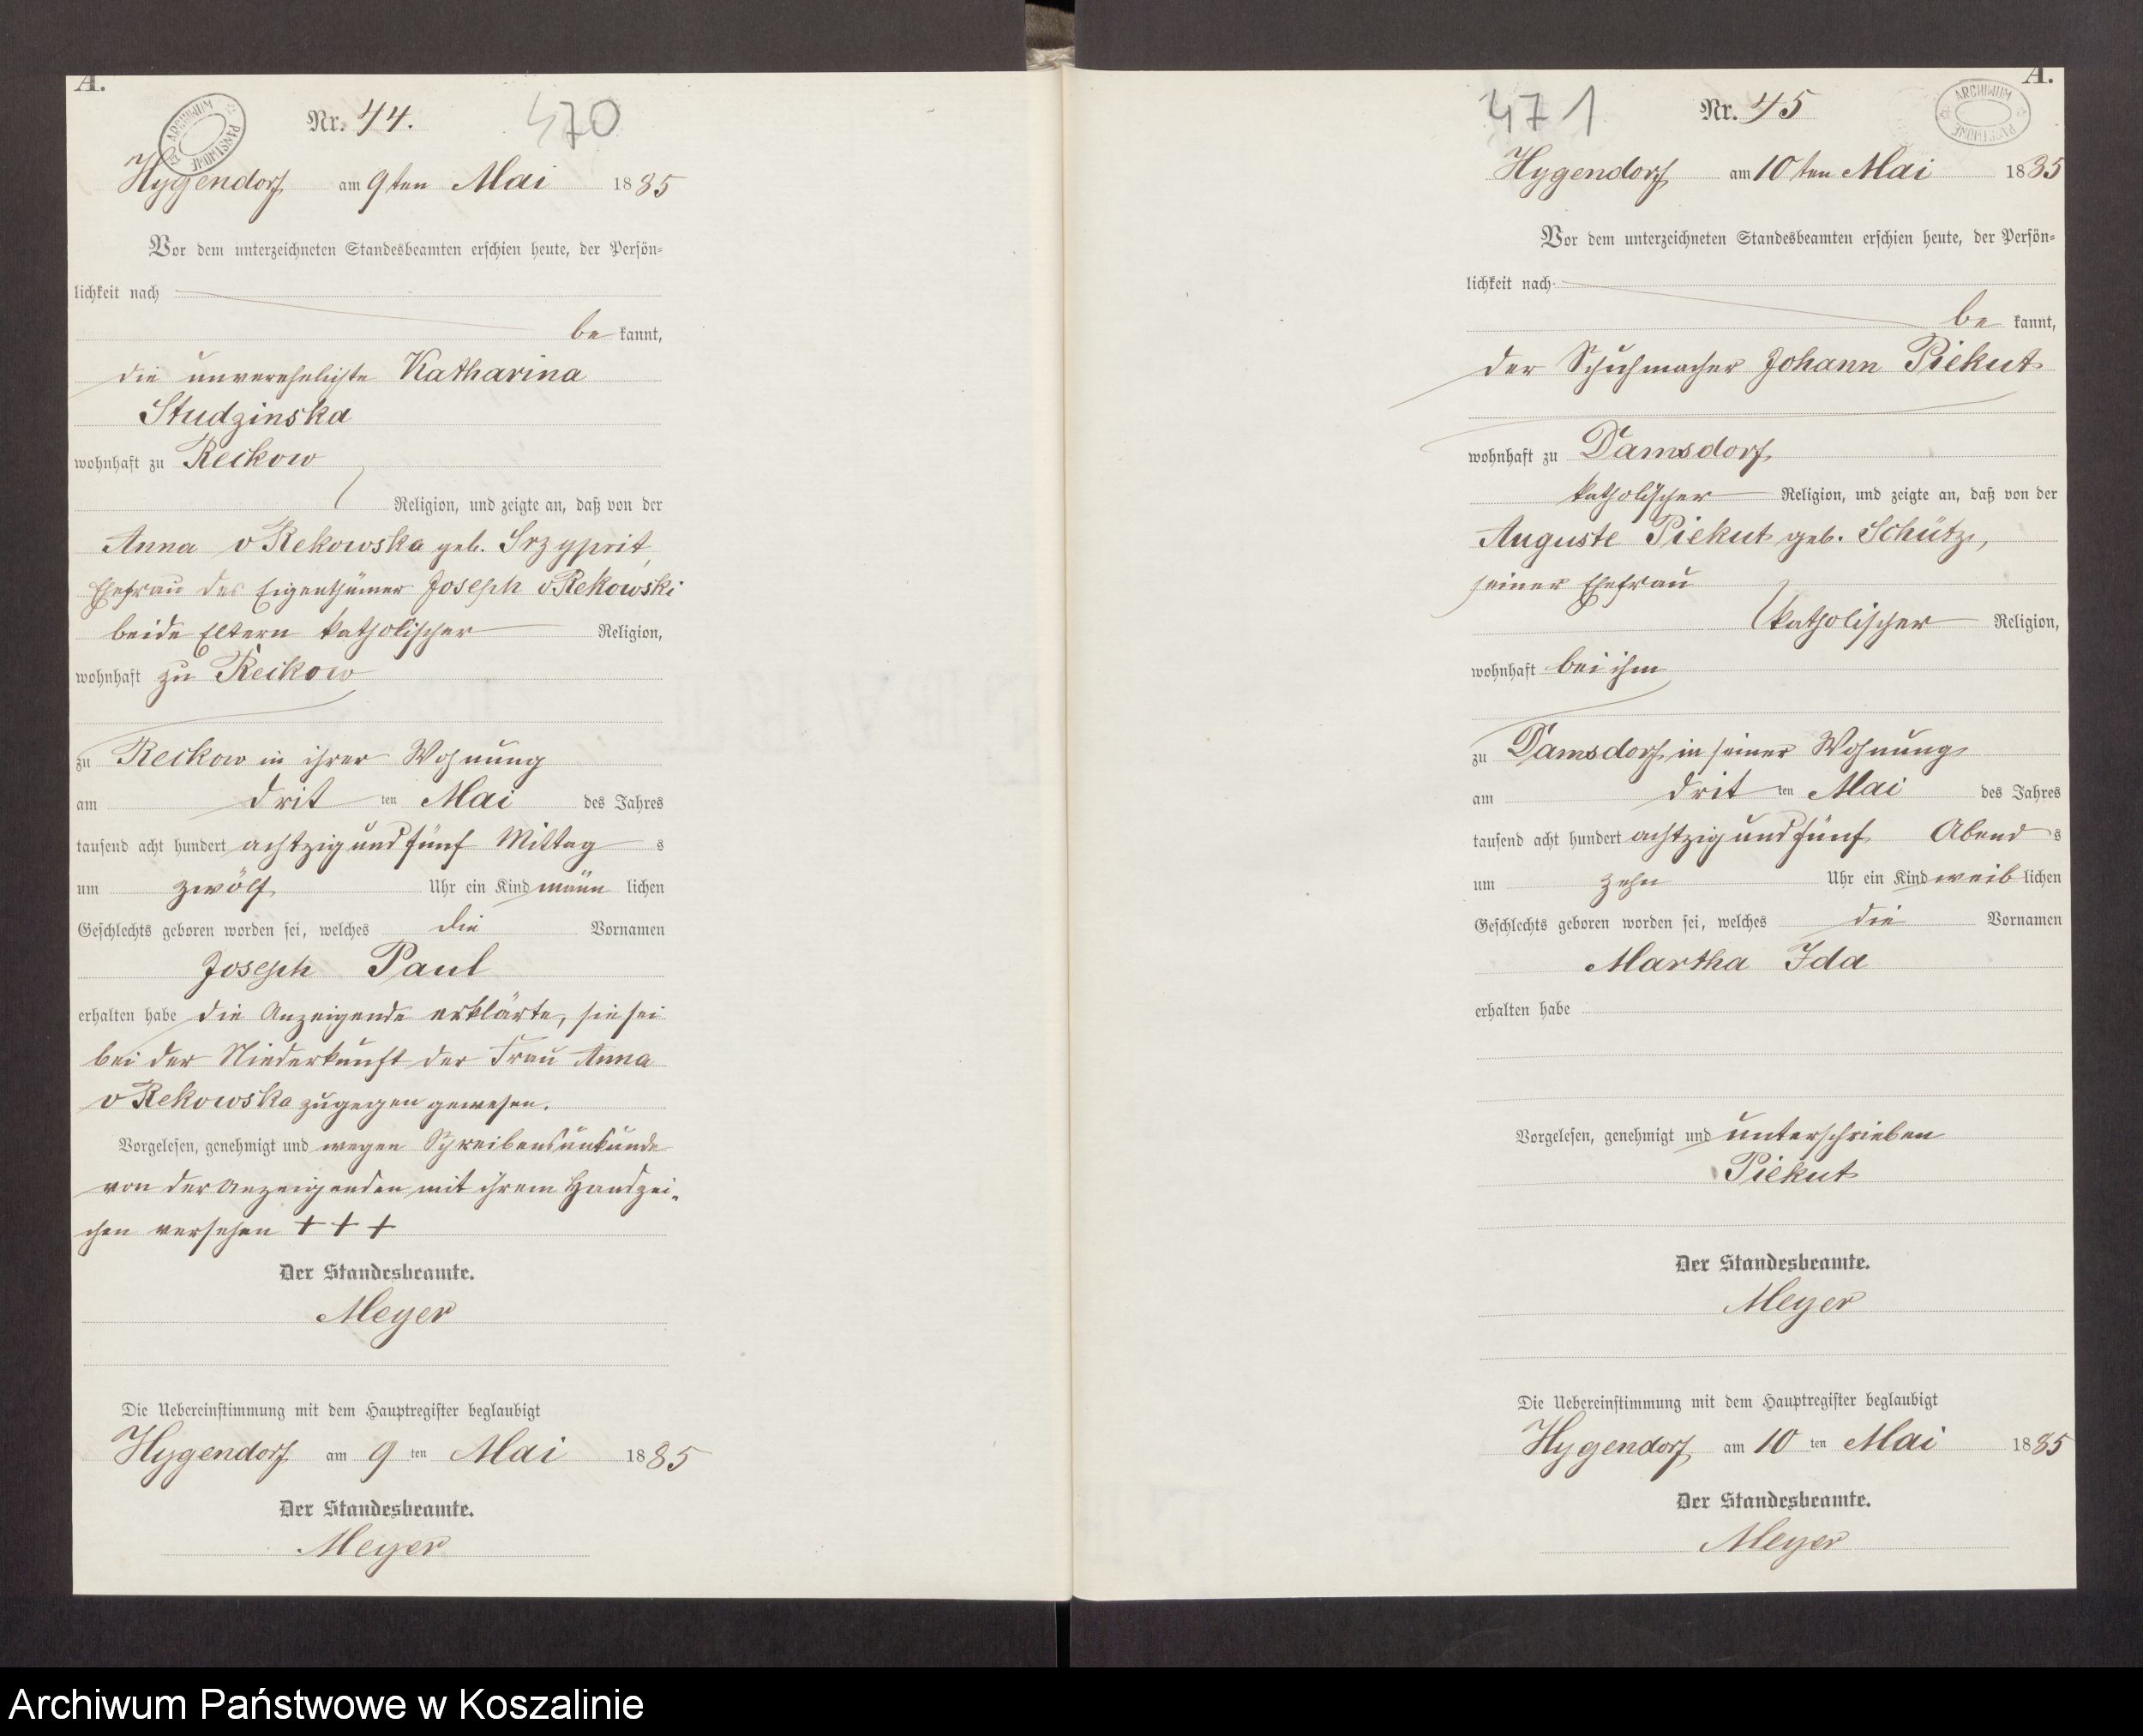 A.
ARCHIWUM PAŃSTWOWE
Nr. 44.
470
Hygendorf am 9ten Mai 1885
Vor dem unterzeichneten Standesbeamten erschien heute, der Persön-
lichkeit nach
be kannt,
die unverehelichte Katharina
Studzinska
wohnhaft zu Reckow
Religion, und zeigte an, daß von der
Anna v Rekowska geb.
Ehefrau des Eigenthümer Joseph v Rekowski
beide Eltern katholischer Religion,
wohnhaft zu Reckow
zu Reckow in ihrer Wohnung
am drit ten Mai des Jahres
tausend acht hundert achtzig und fünf Mittag s
um zwölf Uhr ein Kind männ lichen
Geschlechts geboren worden sei, welches die Vornamen
Joseph Paul
erhalten habe die Anzeigende erklärte, sie sei
bei der Niederkunft der Frau Anna
v Rekowska zugegen gewesen.
Vorgelesen, genehmigt und wegen Schreibensunkunde
von der Anzeigenden mit ihrem Handzei-
chen versehen + + +
Der Standesbeamte.
Meyer
Die Uebereinstimmung mit dem Hauptregister beglaubigt
Hygendorf am 9 ten Mai 1885
Der Standesbeamte.
Meyer
A.
471
Nr. 45
ARCHIWUM PAŃSTWOWE
Hygendorf am 10ten Mai 1885
Vor dem unterzeichneten Standesbeamten erschien heute, der Persön-
lichkeit nach
be kannt,
der Schuhmacher Johann Piekut
wohnhaft zu Damsdorf
katholischer Religion, und zeigte an, daß von der
Auguste Piekut geb. Schütz,
seiner Ehefrau
katholischer Religion,
wohnhaft bei ihm
zu Damsdorf in seiner Wohnung
am drit ten Mai des Jahres
tausend acht hundert achtzig und fünf Abend s
um zehn Uhr ein Kind weib lichen
Geschlechts geboren worden sei, welches die Vornamen
Martha Ida
erhalten habe
Vorgelesen, genehmigt und unterschrieben
Piekut
Der Standesbeamte.
Meyer
Die Uebereinstimmung mit dem Hauptregister beglaubigt
Hygendorf am 10 ten Mai 1885
Der Standesbeamte.
Meyer
Archiwum Państwowe w Koszalinie